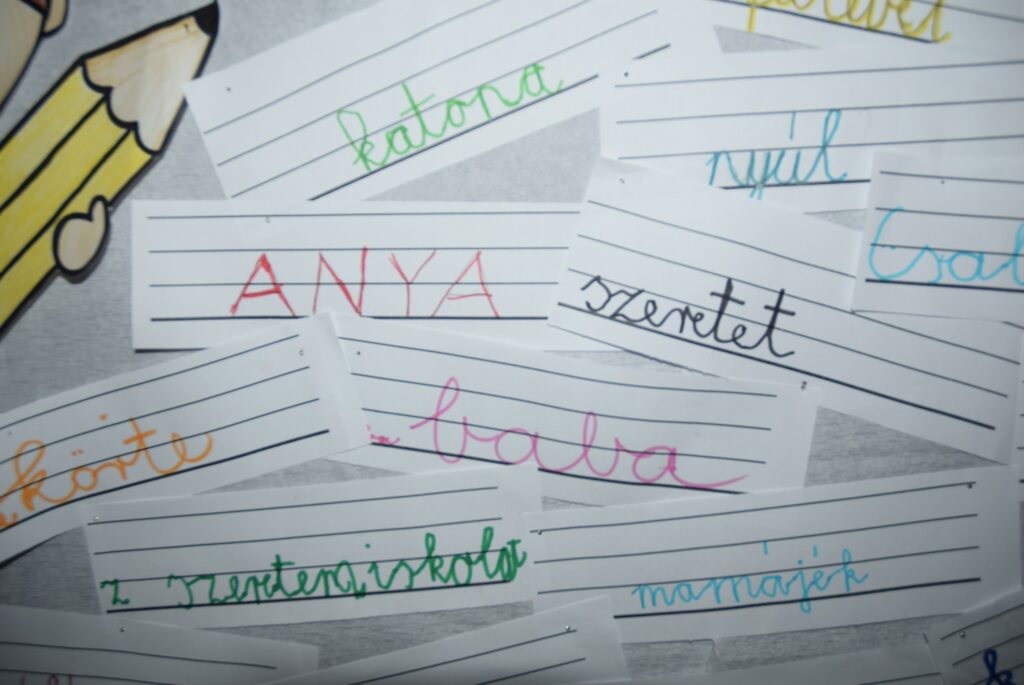 katona
nyúl
ANYA
szeretet
körte
baba
szeretem iskolát
mamájék